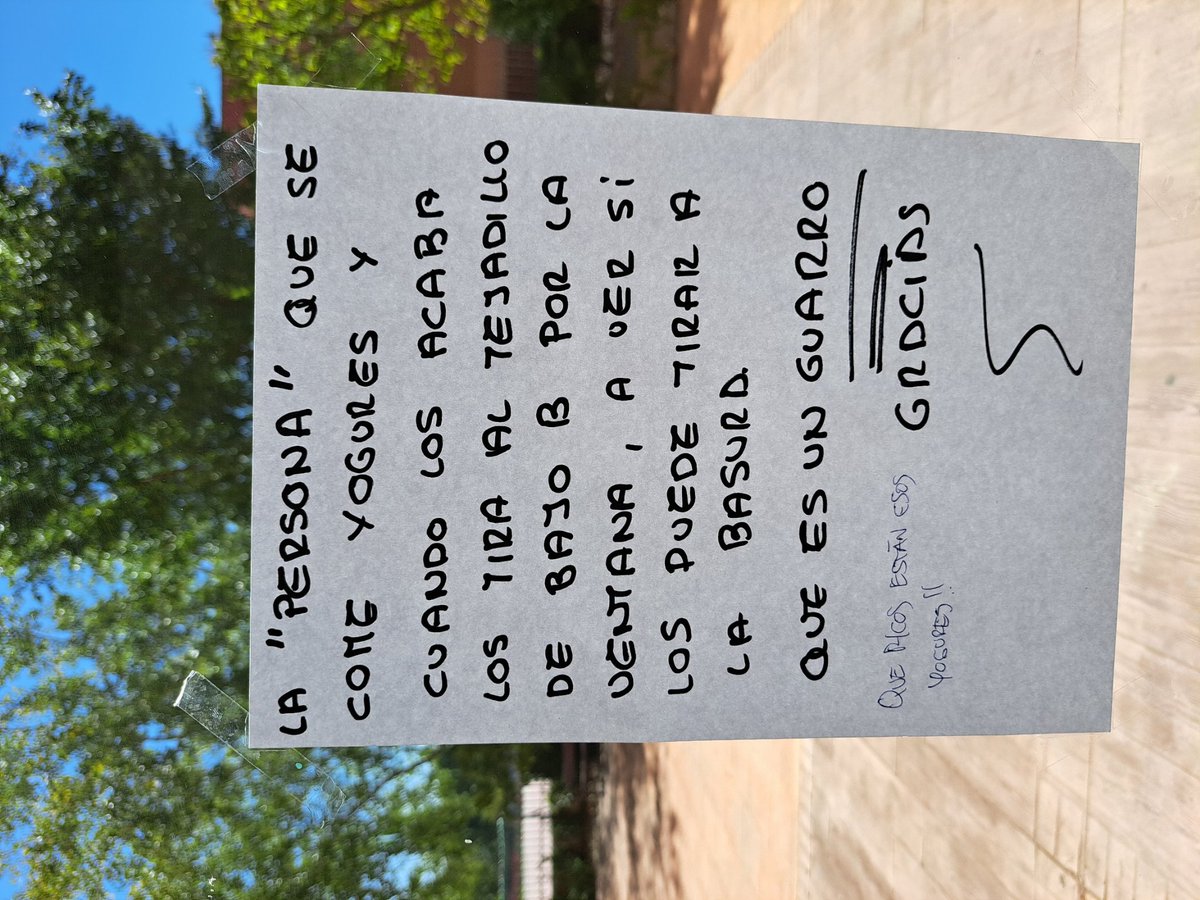 LA "PERSONA" QUE SE
COME YOGURES Y
CUANDO LOS ACABA
LOS TIRA AL TEJADILLO
DE BAJO B POR LA
VENTANA, A VER SI
LOS PUEDE TIRAR A
LA BASURA.
QUE ES UN GUARRO
GRACIAS
QUE RICOS ESTÁN ESOS
YOGURES!!